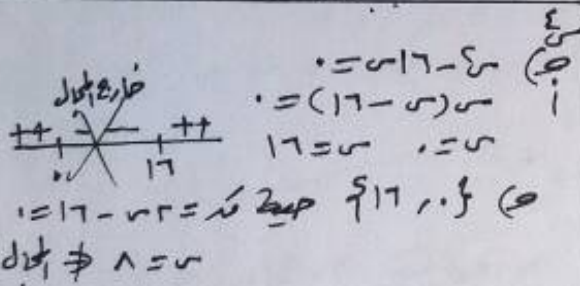 س² - ١٦س = ٠
س(س - ١٦) = ٠
س = ٠ س = ١٦
خارج المجال
++ -- ++
٠ ١٦
{٠ , ١٦} = ٢س - ١٦ = ٠
س = ٨ ∉ المجال